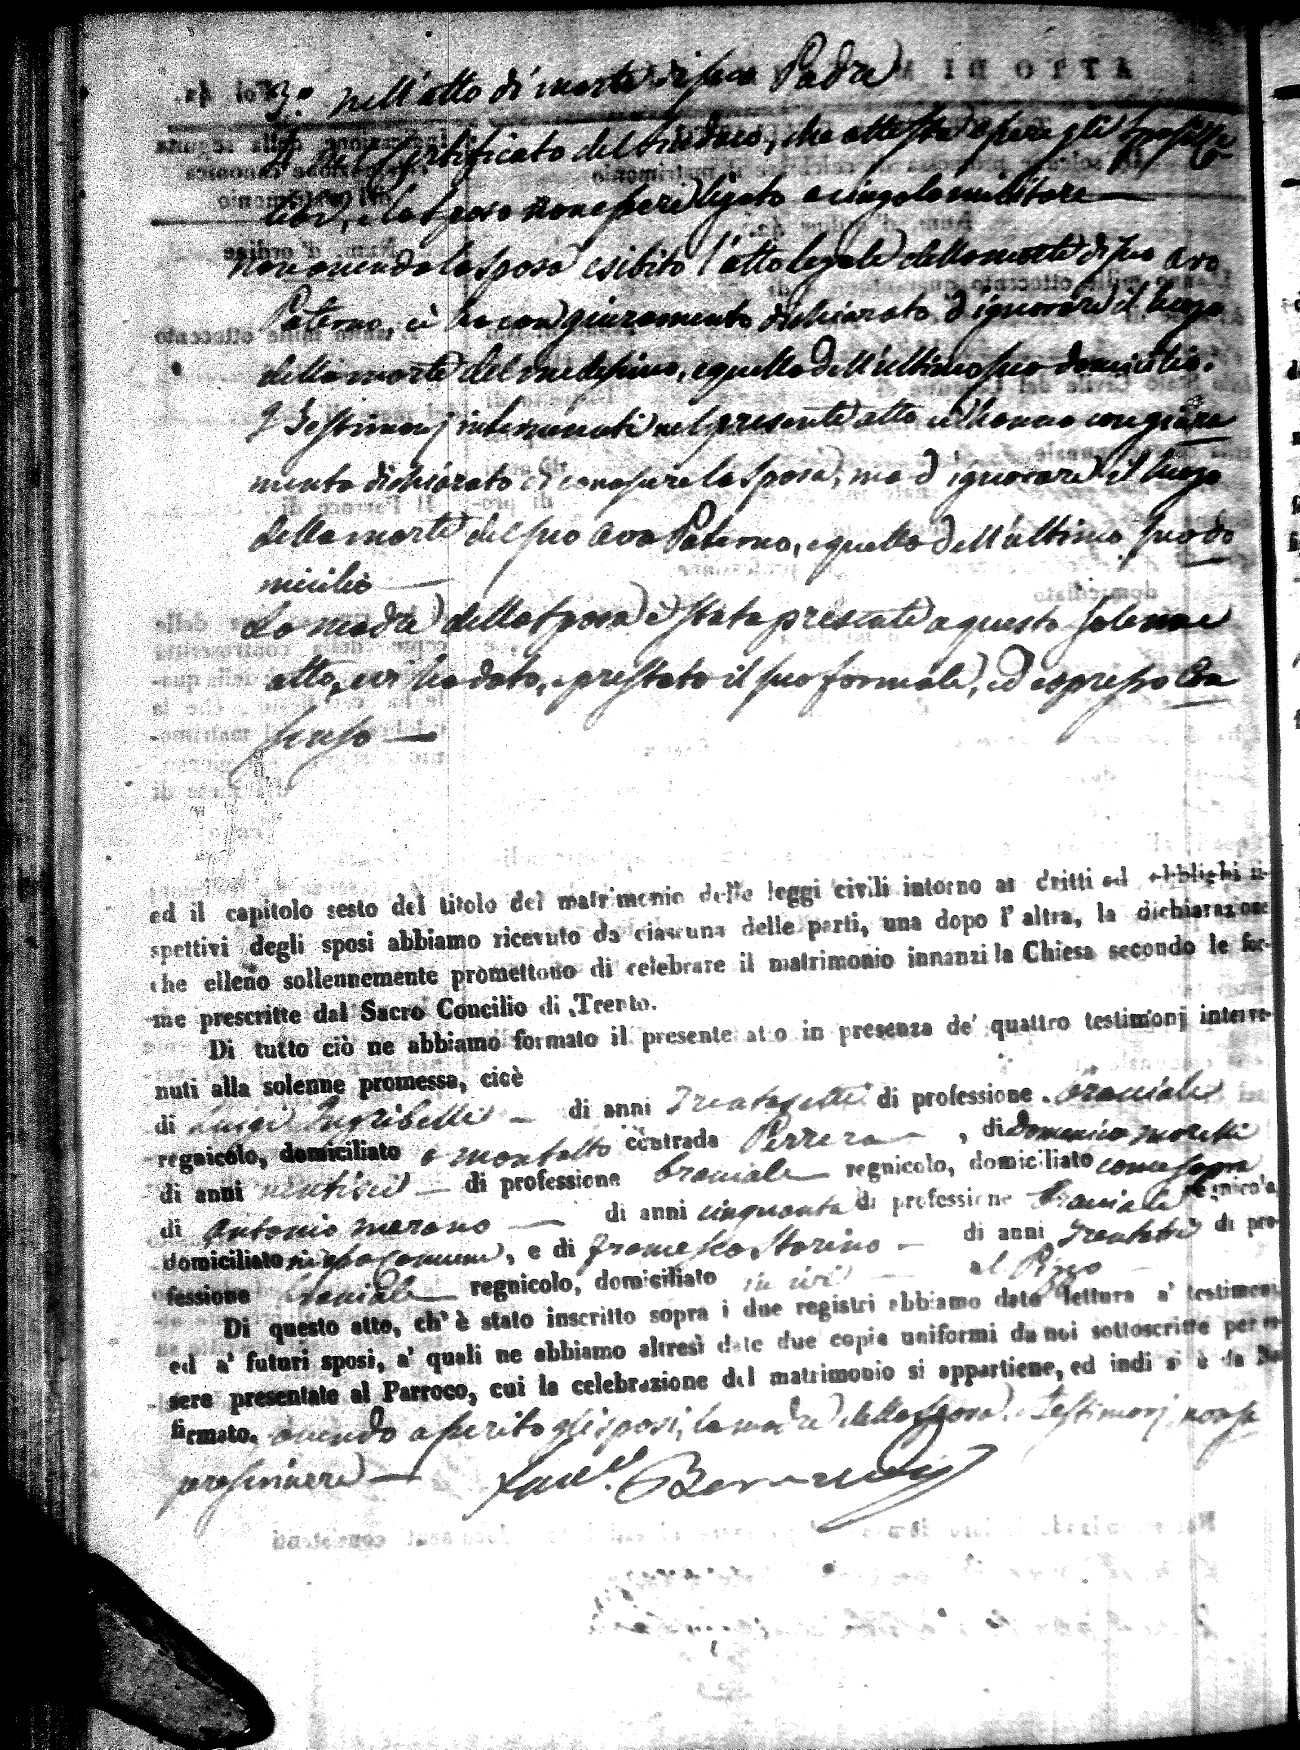 3.° nell'atto di morte di suo Padre
4. del Certificato del Sindaco, che attesta essere gli sposi
liberi, e lo sposo non essere legato a cingolo militare
non avendo la sposa esibito l'atto legale della morte di suo avo
Paterno, ci ha con giuramento dichiarato d'ignorare il luogo
della morte del medesimo, e quello dell'ultimo suo domicilio.
I Testimonj intervenuti nel presente atto ci hanno con giura
mento dichiarato di conoscere la sposa, ma d'ignorare il luogo
della morte del suo avo Paterno, e quello dell'ultimo suo do
micilio
La madre della sposa è stata presente a questo solenne
atto, e vi ha dato, e prestato il suo formale, ed espresso Con
senso
ed il capitolo sesto del titolo del matrimonio delle leggi civili intorno ai dritti ed obblighi ri-
spettivi degli sposi abbiamo ricevuto da ciascuna delle parti, una dopo l'altra, la dichiarazione
che elleno sollennemente promettono di celebrare il matrimonio innanzi la Chiesa secondo le for-
me prescritte dal Sacro Concilio di Trento.
Di tutto ciò ne abbiamo formato il presente atto in presenza de' quattro testimonj interve-
nuti alla solenne promessa, cioè
di Luigi di anni Trentasette di professione Braciale
regnicolo, domiciliato a Montalto contrada Perrera, di Domenico Moretti
di anni ventisei di professione braciale regnicolo, domiciliato come sopra
di Antonio Merano di anni cinquanta di professione Braciale regnicolo
domiciliato in essa Comune, e di Francesco Storino di anni Trentatre di pro-
fessione braciale regnicolo, domiciliato in ivi al Pizzo
Di questo atto, ch'è stato inscritto sopra i due registri abbiamo dato lettura a' testimonj
ed a' futuri sposi, a' quali ne abbiamo altresì date due copie uniformi da noi sottoscritte per es-
sere presentate al Parroco, cui la celebrazione del matrimonio si appartiene, ed indi si è da Noi
firmato. avendo asserito gli sposi, la madre della sposa, e Testimonj non sa
per scrivere